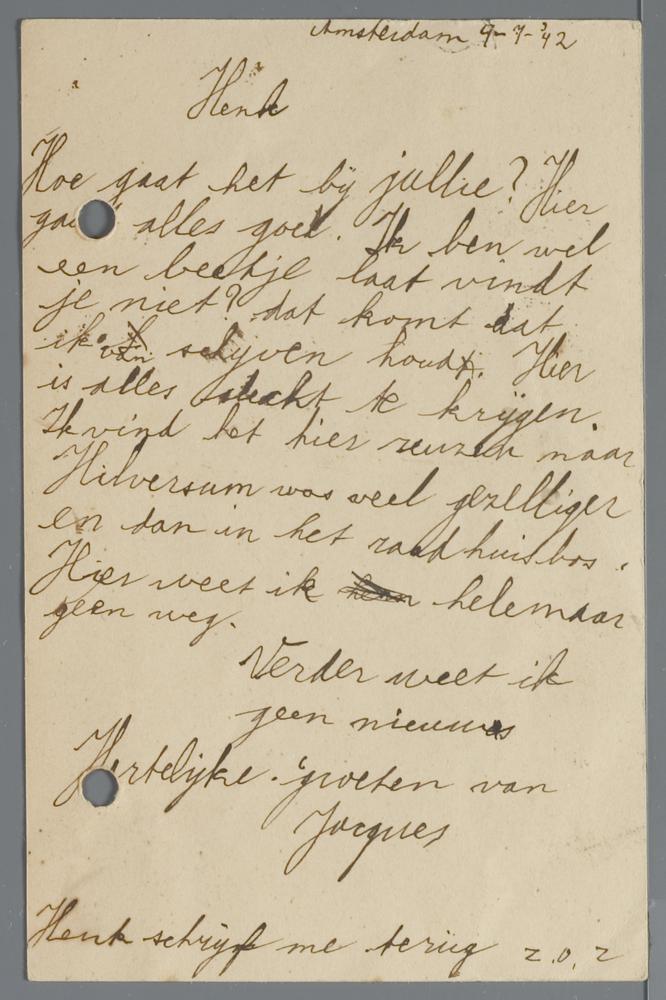 Amsterdam 9-7-'42
Henk
Hoe gaat het bij jullie? Hier
gaat alles goed. Ik ben wel
een beetje laat vindt
je niet? dat komt dat
ik van schijven houdt. Hier
is alles slecht te krijgen.
Ik vind het hier reuzen maar
Hilversum was veel gezelliger
en dan in het raadhuisbos.
Hier weet ik helemaar
geen weg.
Verder weet ik
geen nieuws
Hertelijke groeten van
Jacques
Henk schrijf me terug z.o.z